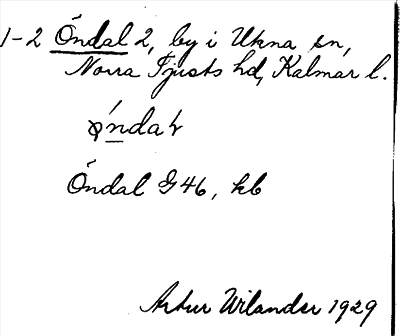 1-2 Öndal 2, by i Ukna sn,
Norra Tjusts hd, Kalmar l.
Öndal G 46, kb
Artur Wilander 1929